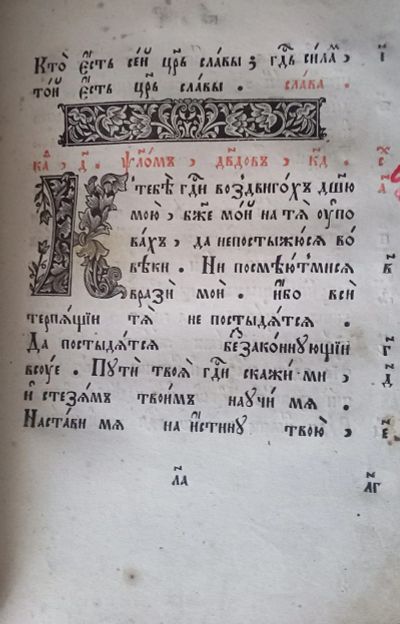 Кто̀ є҆́сть се́й цр҃ь сла́вы; гдⷭ҇ь си́лам, і҃
то́й є҆́сть цр҃ь сла́вы. сла́ва.
ка, д҃. ѱало́мъ, дв҃довъ, к҃д.
К тебѣ̀ гдⷭ҇и воздвиго́хъ дш҃ю а҃
мою̀, бж҃е мо́й на тѧ̀ ᲂу҆по
ва́хъ, да непостыжю́сѧ во
вѣ́ки. Ни посмѣю́тмисѧ в҃
вразѝ моѝ. и҆́бо всѝ
терпѧ́щїи тѧ̀ не постыдѧ́тсѧ.
Да постыдѧ́тсѧ беззако́ннующїи г҃
всꙋ́е. Пути̑ твоѧ̑ гдⷭ҇и скажи́ ми, д҃
и҆ стезѧ́мъ твои́мъ научи́ мѧ.
Наста́ви мѧ на и҆́стинꙋ твою̀, є҃
л҃а
л҃г